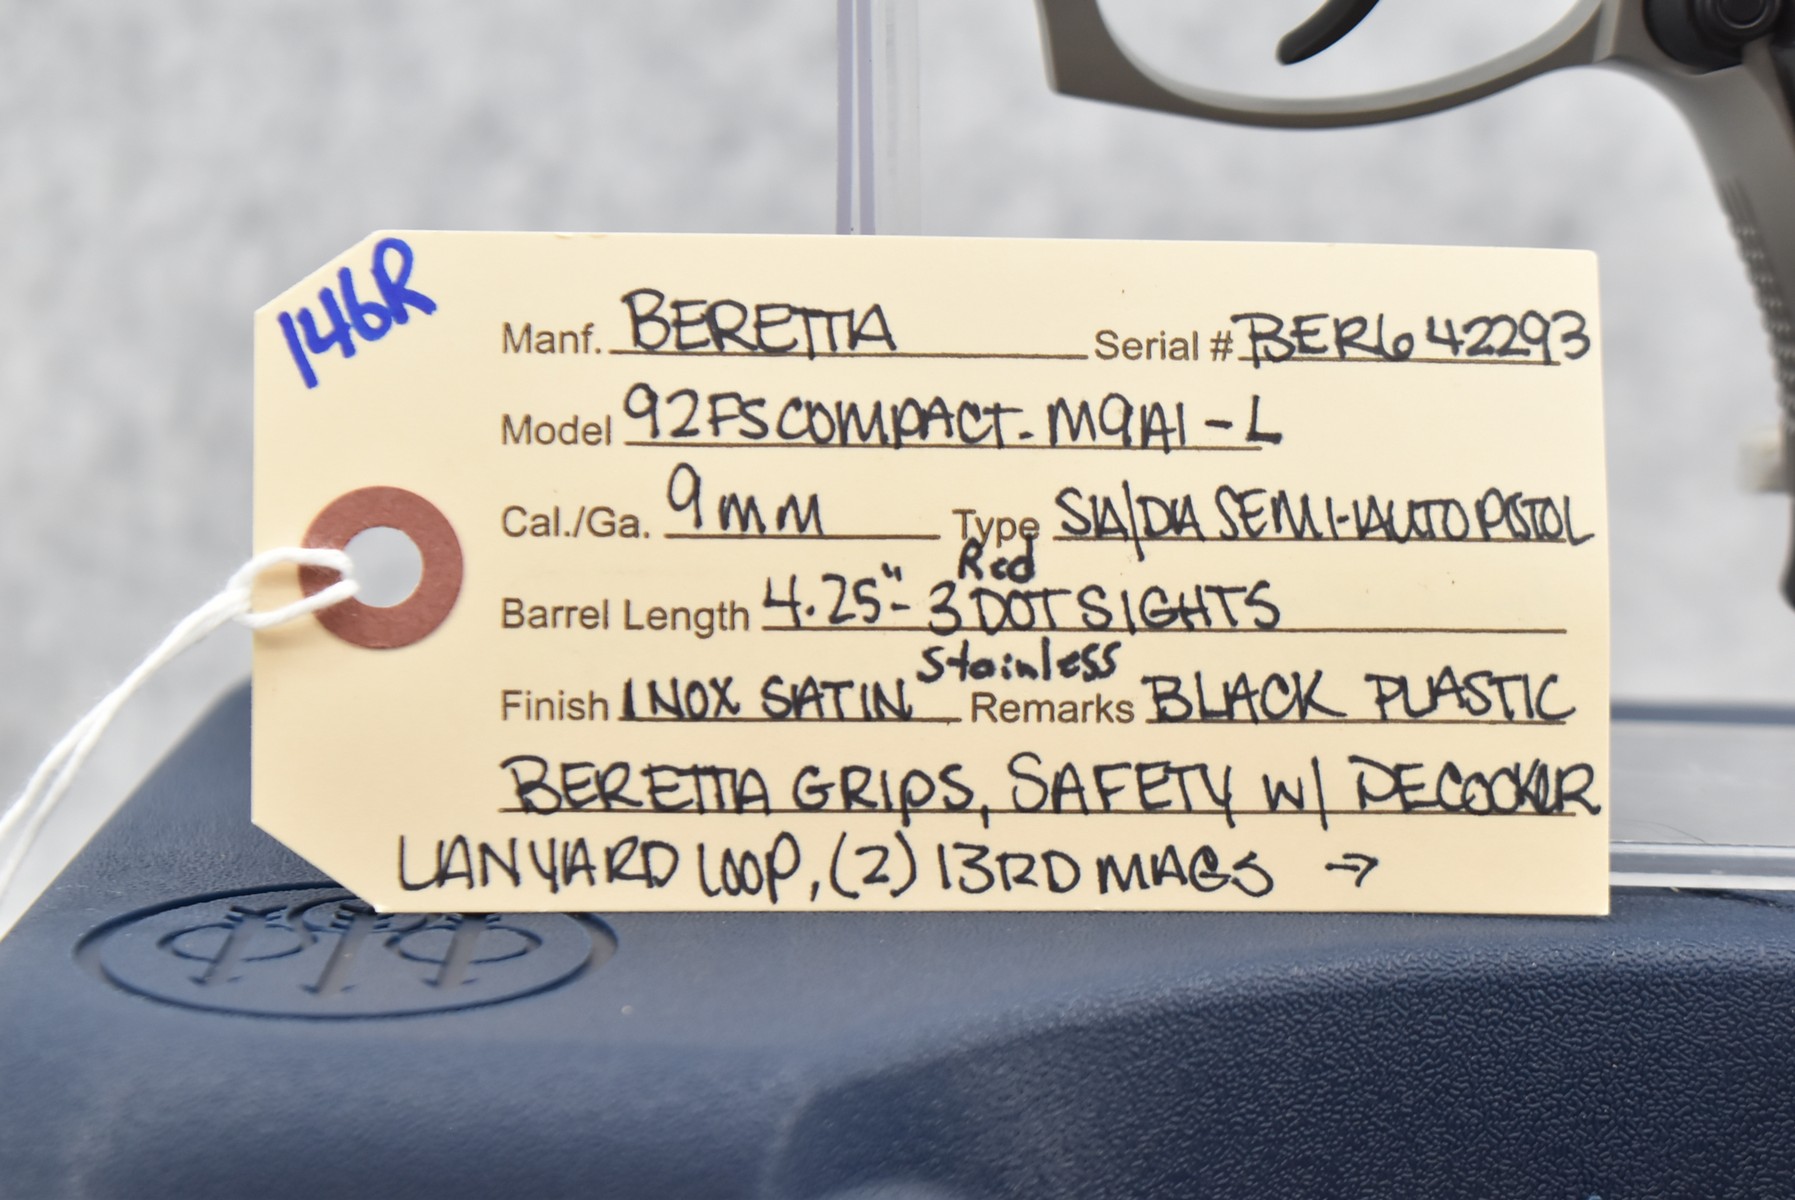 146R
Manf. BERETTA Serial # BER642293
Model 92FS COMPACT - M9A1 - L
Cal./Ga. 9mm Type SA/DA SEMI-AUTO PISTOL
Red
Barrel Length 4.25" - 3 DOT SIGHTS
Stainless
Finish INOX SATIN Remarks BLACK PLASTIC
BERETTA GRIPS, SAFETY W/ DECOCKER
LANYARD LOOP, (2) 13RD MAGS →